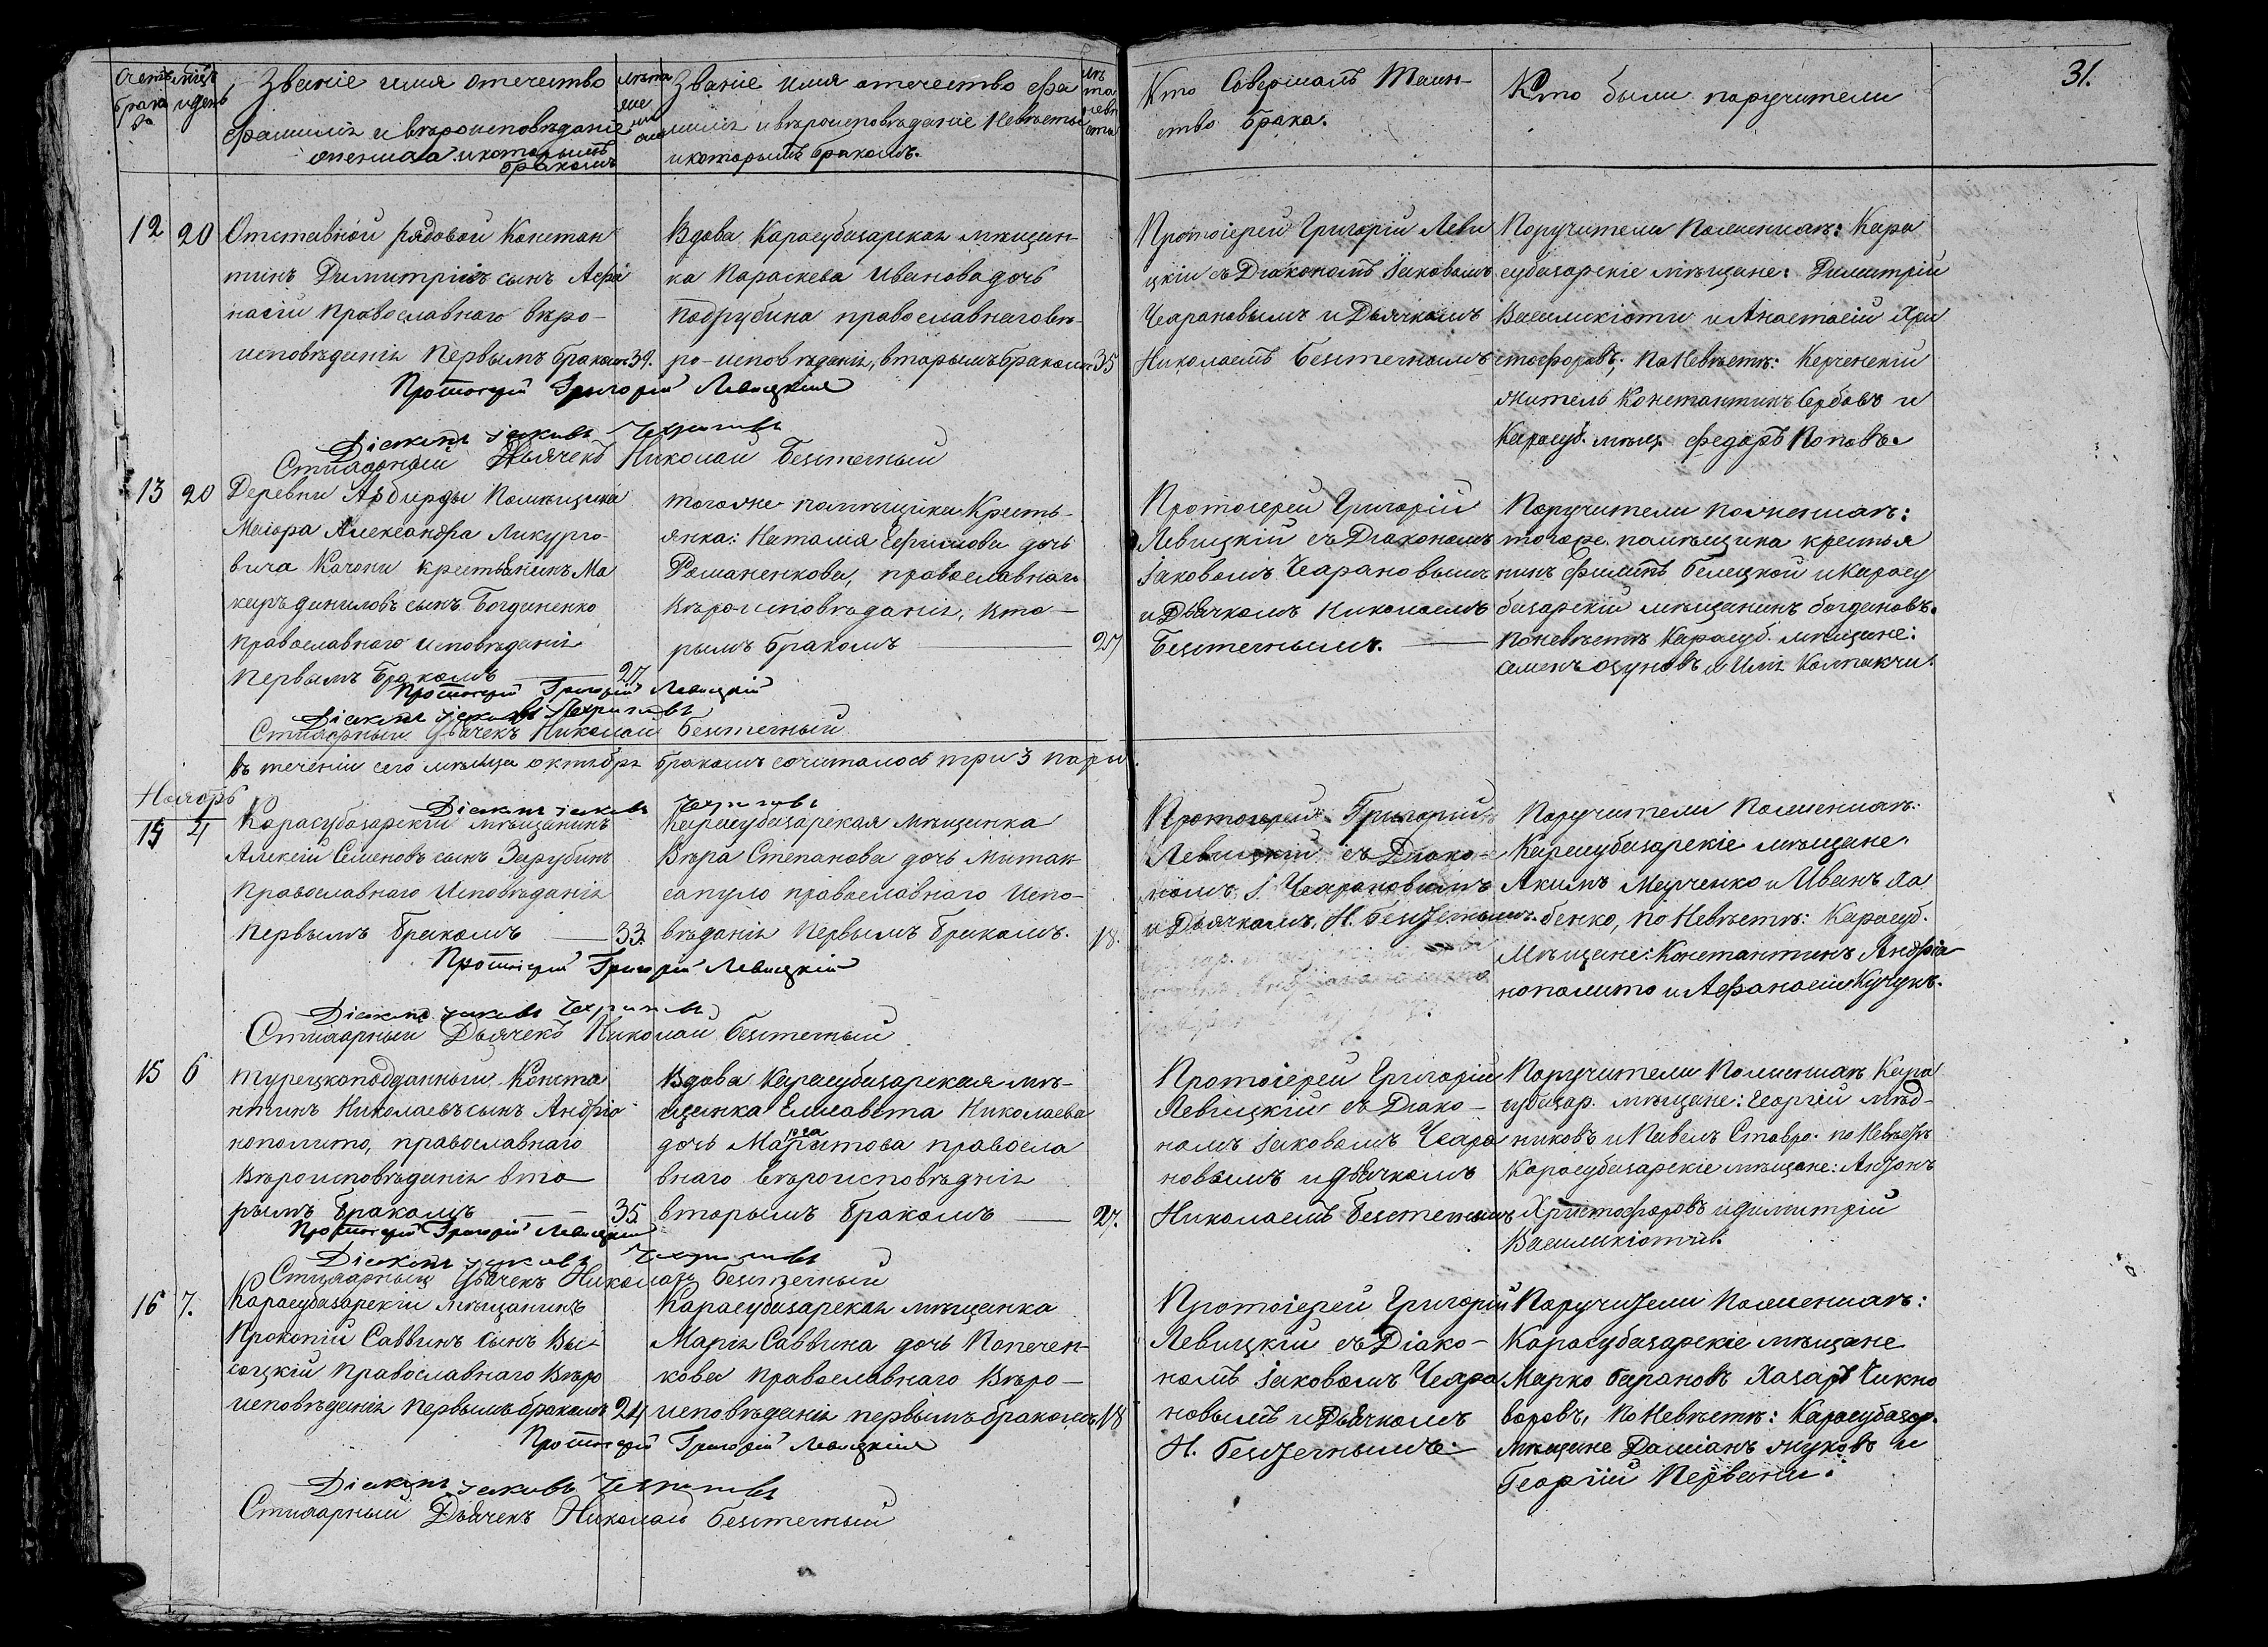 31.
Счетъ брака
мѣсяцъ и день
Званіе имя отечество
фамилія и вѣроисповѣданіе
жениха и которымъ
бракомъ
лѣта жениха
Званіе имя отечество фа
милія и вѣроисповѣданіе Невѣсты
и которымъ бракомъ.
лѣта невѣсты
Кто Совершалъ Таин-
ство брака.
Кто были поручители
12 20
Отставной рядовой Констан
тинъ Димитріевъ сынъ Афа
насій православнаго вѣро-
исповѣданія Первымъ бракомъ 39.
Вдова Карасубазарская мѣщан-
ка Параскева Иванова дочь
Подрубина православнаго вѣ-
ро-исповѣданія, вторымъ бракомъ 35
Протоіерей Григорій Леви
цкій съ Діакономъ Іаковомъ
и Дьячкомъ
Николаемъ Безштетнымъ
Поручители По женихѣ: Кара
субазарскіе мѣщане: Димитрій
Василикіоти и Анастасій Хри
стофоровъ; По Невѣстѣ: Керченскій
житель Константинъ Сербовъ и
Карасуб. мѣщ. Федоръ Поповъ.
Протоіерей Григорій Левицкій
Діаконъ Іаковъ
Стихарный Дьячекъ Николай Безштетный
13 20
Деревни Помѣщика
Маіора Александра Ликурго-
вича Качони крестьянинъ Ма
каръ Даниловъ сынъ Богданенко
православнаго исповѣданія
Первымъ бракомъ 27
тогоже помѣщика Кресть-
янка: Наталія Ефимова дочь
Романенкова, православнаго
вѣроисповѣданія, вто-
рымъ бракомъ 27
Протоіерей Григорій
Левицкій съ Діакономъ
Іаковомъ
и Дьячкомъ Николаемъ
Безштетнымъ.
Поручители по женихѣ:
тогоже помѣщика крестья
нинъ Филипъ Белецкой и Карасу
базарскій мѣщанинъ Богдановъ.
По невѣстѣ Карасуб. мѣщане:
Семенъ Озуновъ и Илія Колпакчи.
Протоіерей Григорій Левицкій
Діаконъ Іаковъ
Стихарный Дьячекъ Николай Безштетный
въ теченіи сего мѣсяца октября бракомъ сочиталось три 3 пары.
Діаконъ Іаковъ
Ноябрь
14 4
Карасубазарскій мѣщанинъ
Алексій Семеновъ сынъ Зарубинъ
православнаго Исповѣданія
Первымъ бракомъ 33.
Карасубазарская мѣщанка
Вѣра Степанова дочь Митак
сапуло православнаго Испо-
вѣданія Первымъ бракомъ. 18.
Протоіерей Григорій
Левицкій съ Діако-
номъ І.
и Дьячкомъ Н. Безштетнымъ.
Поручители По женихѣ:
Карасубазарскіе мѣщане.
Акимъ Марченко и Иванъ Ха
бенко, по Невѣстѣ: Карасуб.
Мѣщане: Константинъ Андріа
нополито и Афанасій Кучукъ.
Протоіерей Григорій Левицкій
Діаконъ Іаковъ
Стихарный Дьячекъ Николай Безштетный
15 6
Турецкоподданный Конста
нтинъ Николаевъ сынъ Андріа
нополито, православнаго
Вѣроисповѣданія вто
рымъ бракомъ 35.
Вдова Карасубазарская мѣ-
щанка Елисавета Николаева
дочь правосла
внаго вѣроисповѣданія
вторымъ бракомъ 27.
Протоіерей Григорій
Левицкій съ Діако-
номъ Іаковомъ
новымъ и дьячкомъ
Николаемъ Безштетнымъ
Поручители По женихѣ Кара
субазар. мѣщане: Георгій Мѣд-
никовъ и Павелъ Ставро. по Невѣстѣ
Карасубазарскіе мѣщане: Антонъ
Христофоровъ и Димитрій
Василикіоти.
Протоіерей Григорій Левицкій
Діаконъ Іаковъ
Стихарный Дьячекъ Николай Безштетный
16 7.
Карасубазарскій мѣщанинъ
Прокопій Саввинъ сынъ Вы-
соцкій Православнаго Вѣро
исповѣданія Первымъ бракомъ 24
Карасубазарская мѣщанка
Марія Саввина дочь Попечен-
кова Православнаго Вѣро-
исповѣданія первымъ бракомъ 18
Протоіерей Григорій
Левицкій съ Діако-
номъ Іаковомъ
новымъ и Дьячкомъ
Н. Безштетнымъ.
Поручители По женихѣ:
Карасубазарскіе мѣщане
Марко Барановъ Лазарь Чикно
воровъ, По Невѣстѣ: Карасубазар.
Мѣщане Даміанъ Жуковъ и
Георгій Первани.
Протоіерей Григорій Левицкій
Діаконъ Іаковъ
Стихарный Дьячекъ Николай Безштетный